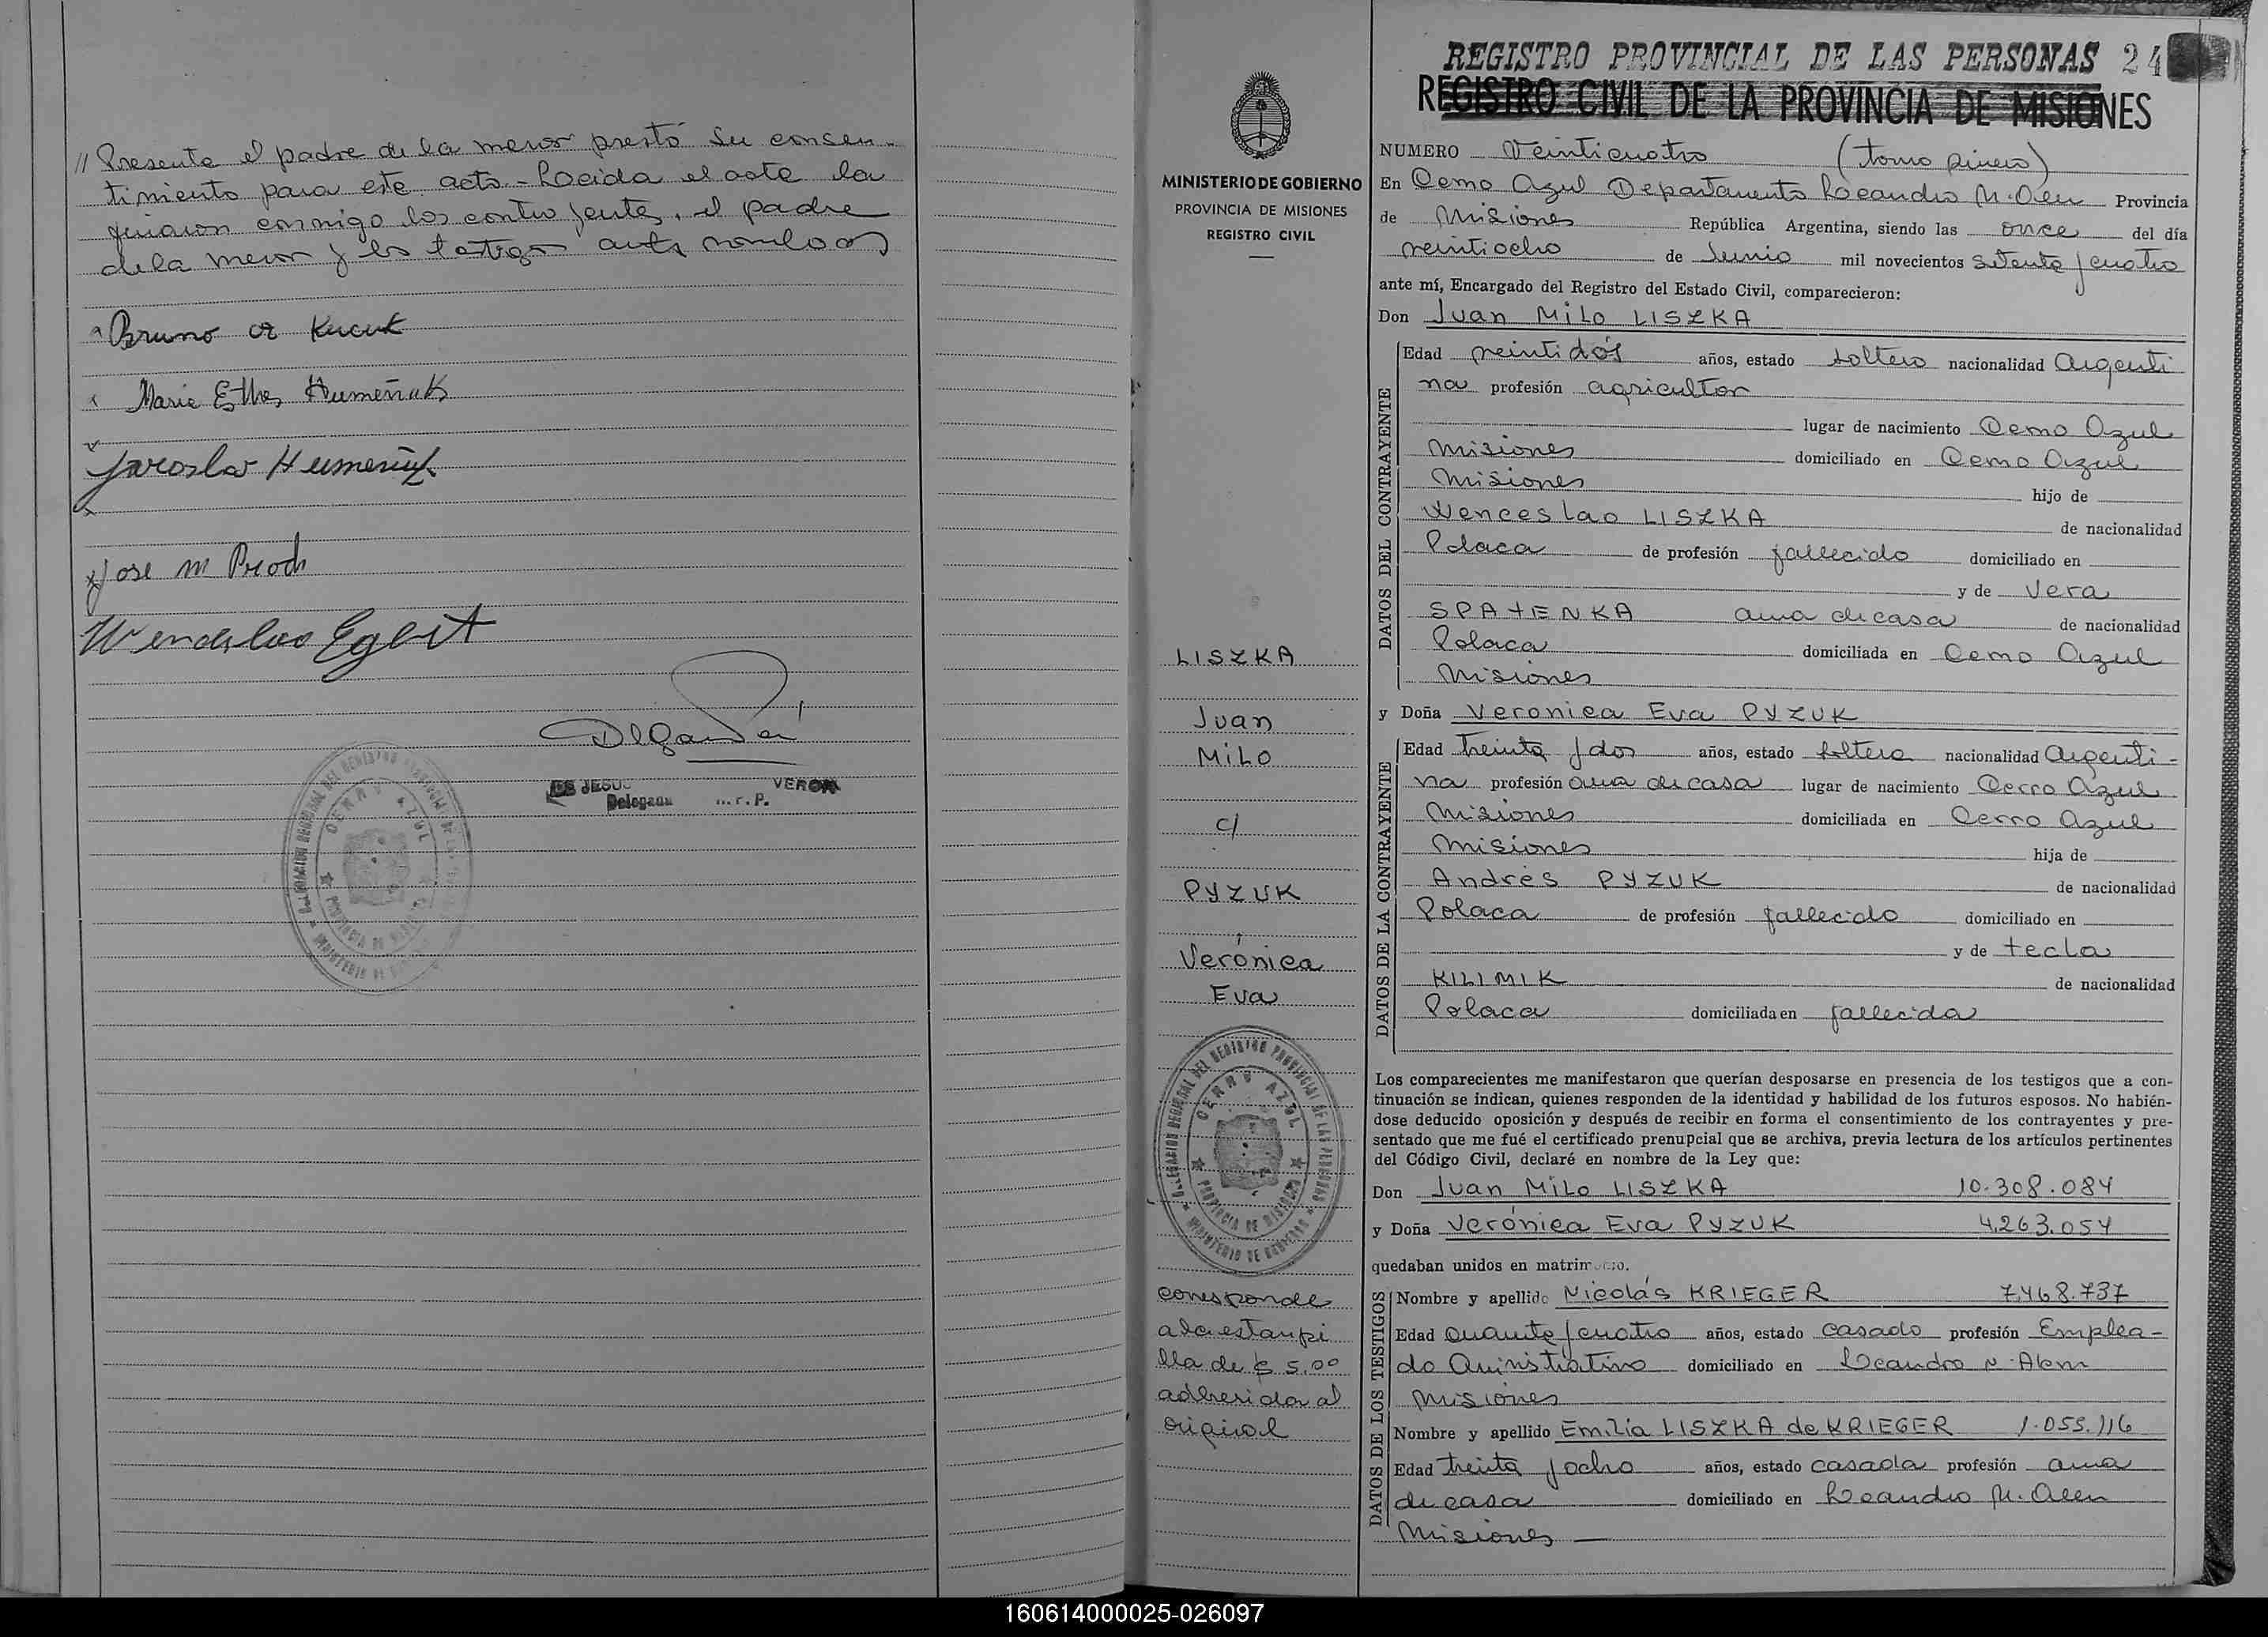 // Presente el padre de la menor prestó su consen-
timiento para este acto - Leida el acta la
firmaron conmigo los contrayentes, el padre
de la menor y los testigos antes nombrados
Bruno Kucuk
Maria Esther Humeñuk
Jaroslav Humeñuk
Jose M
Wendelino Egert
DE JESUS VERON
Delegada R. P.
MINISTERIO DE GOBIERNO
PROVINCIA DE MISIONES
REGISTRO CIVIL
LISZKA
Juan
Milo
c/
PYZUK
Verónica
Eva
DELEGACION REGIONAL DEL REGISTRO PROVINCIAL DE LAS PERSONAS
CERRO AZUL
PROVINCIA DE MISIONES
MINISTERIO DE GOBIERNO
corresponde
a la estampi
lla de $ 5,00
adherida al
original
REGISTRO PROVINCIAL DE LAS PERSONAS 24
REGISTRO CIVIL DE LA PROVINCIA DE MISIONES
NUMERO Veinticuatro (tomo primero)
En Cerro Azul Departamento Leandro N. Alem Provincia
de Misiones República Argentina, siendo las once del día
veintiocho de Junio mil novecientos setenta y cuatro
ante mí, Encargado del Registro del Estado Civil, comparecieron:
Don Juan Milo LISZKA
DATOS DEL CONTRAYENTE
Edad veintidós años, estado soltero nacionalidad Argenti
na profesión agricultor
lugar de nacimiento Cerro Azul
Misiones domiciliado en Cerro Azul
Misiones hijo de
Wenceslao LISZKA de nacionalidad
Polaca de profesión fallecido domiciliado en
y de Vera
SPATENKA ama de casa de nacionalidad
Polaca domiciliada en Cerro Azul
Misiones
y Doña Veronica Eva PYZUK
DATOS DE LA CONTRAYENTE
Edad treinta y dos años, estado soltera nacionalidad Argenti-
na profesión ama de casa lugar de nacimiento Cerro Azul
Misiones domiciliada en Cerro Azul
Misiones hija de
Andrés PYZUK de nacionalidad
Polaca de profesión fallecido domiciliado en
y de tecla
KILIMIK de nacionalidad
Polaca domiciliada en fallecida
Los comparecientes me manifestaron que querían desposarse en presencia de los testigos que a con-
tinuación se indican, quienes responden de la identidad y habilidad de los futuros esposos. No habién-
dose deducido oposición y después de recibir en forma el consentimiento de los contrayentes y pre-
sentado que me fué el certificado prenupcial que se archiva, previa lectura de los artículos pertinentes
del Código Civil, declaré en nombre de la Ley que:
Don Juan Milo LISZKA 10.308.084
y Doña Verónica Eva PYZUK 4.263.054
quedaban unidos en matrimonio.
DATOS DE LOS TESTIGOS
Nombre y apellido Nicolás KRIEGER 7.468.737
Edad cuarenta y cuatro años, estado casado profesión Emplea-
do Aministrativo domiciliado en Leandro N. Alem
Misiones
Nombre y apellido Emilia LISZKA de KRIEGER 1.055.116
Edad treinta y ocho años, estado casada profesión ama
de casa domiciliado en Leandro N. Alem
Misiones
160614000025-026097